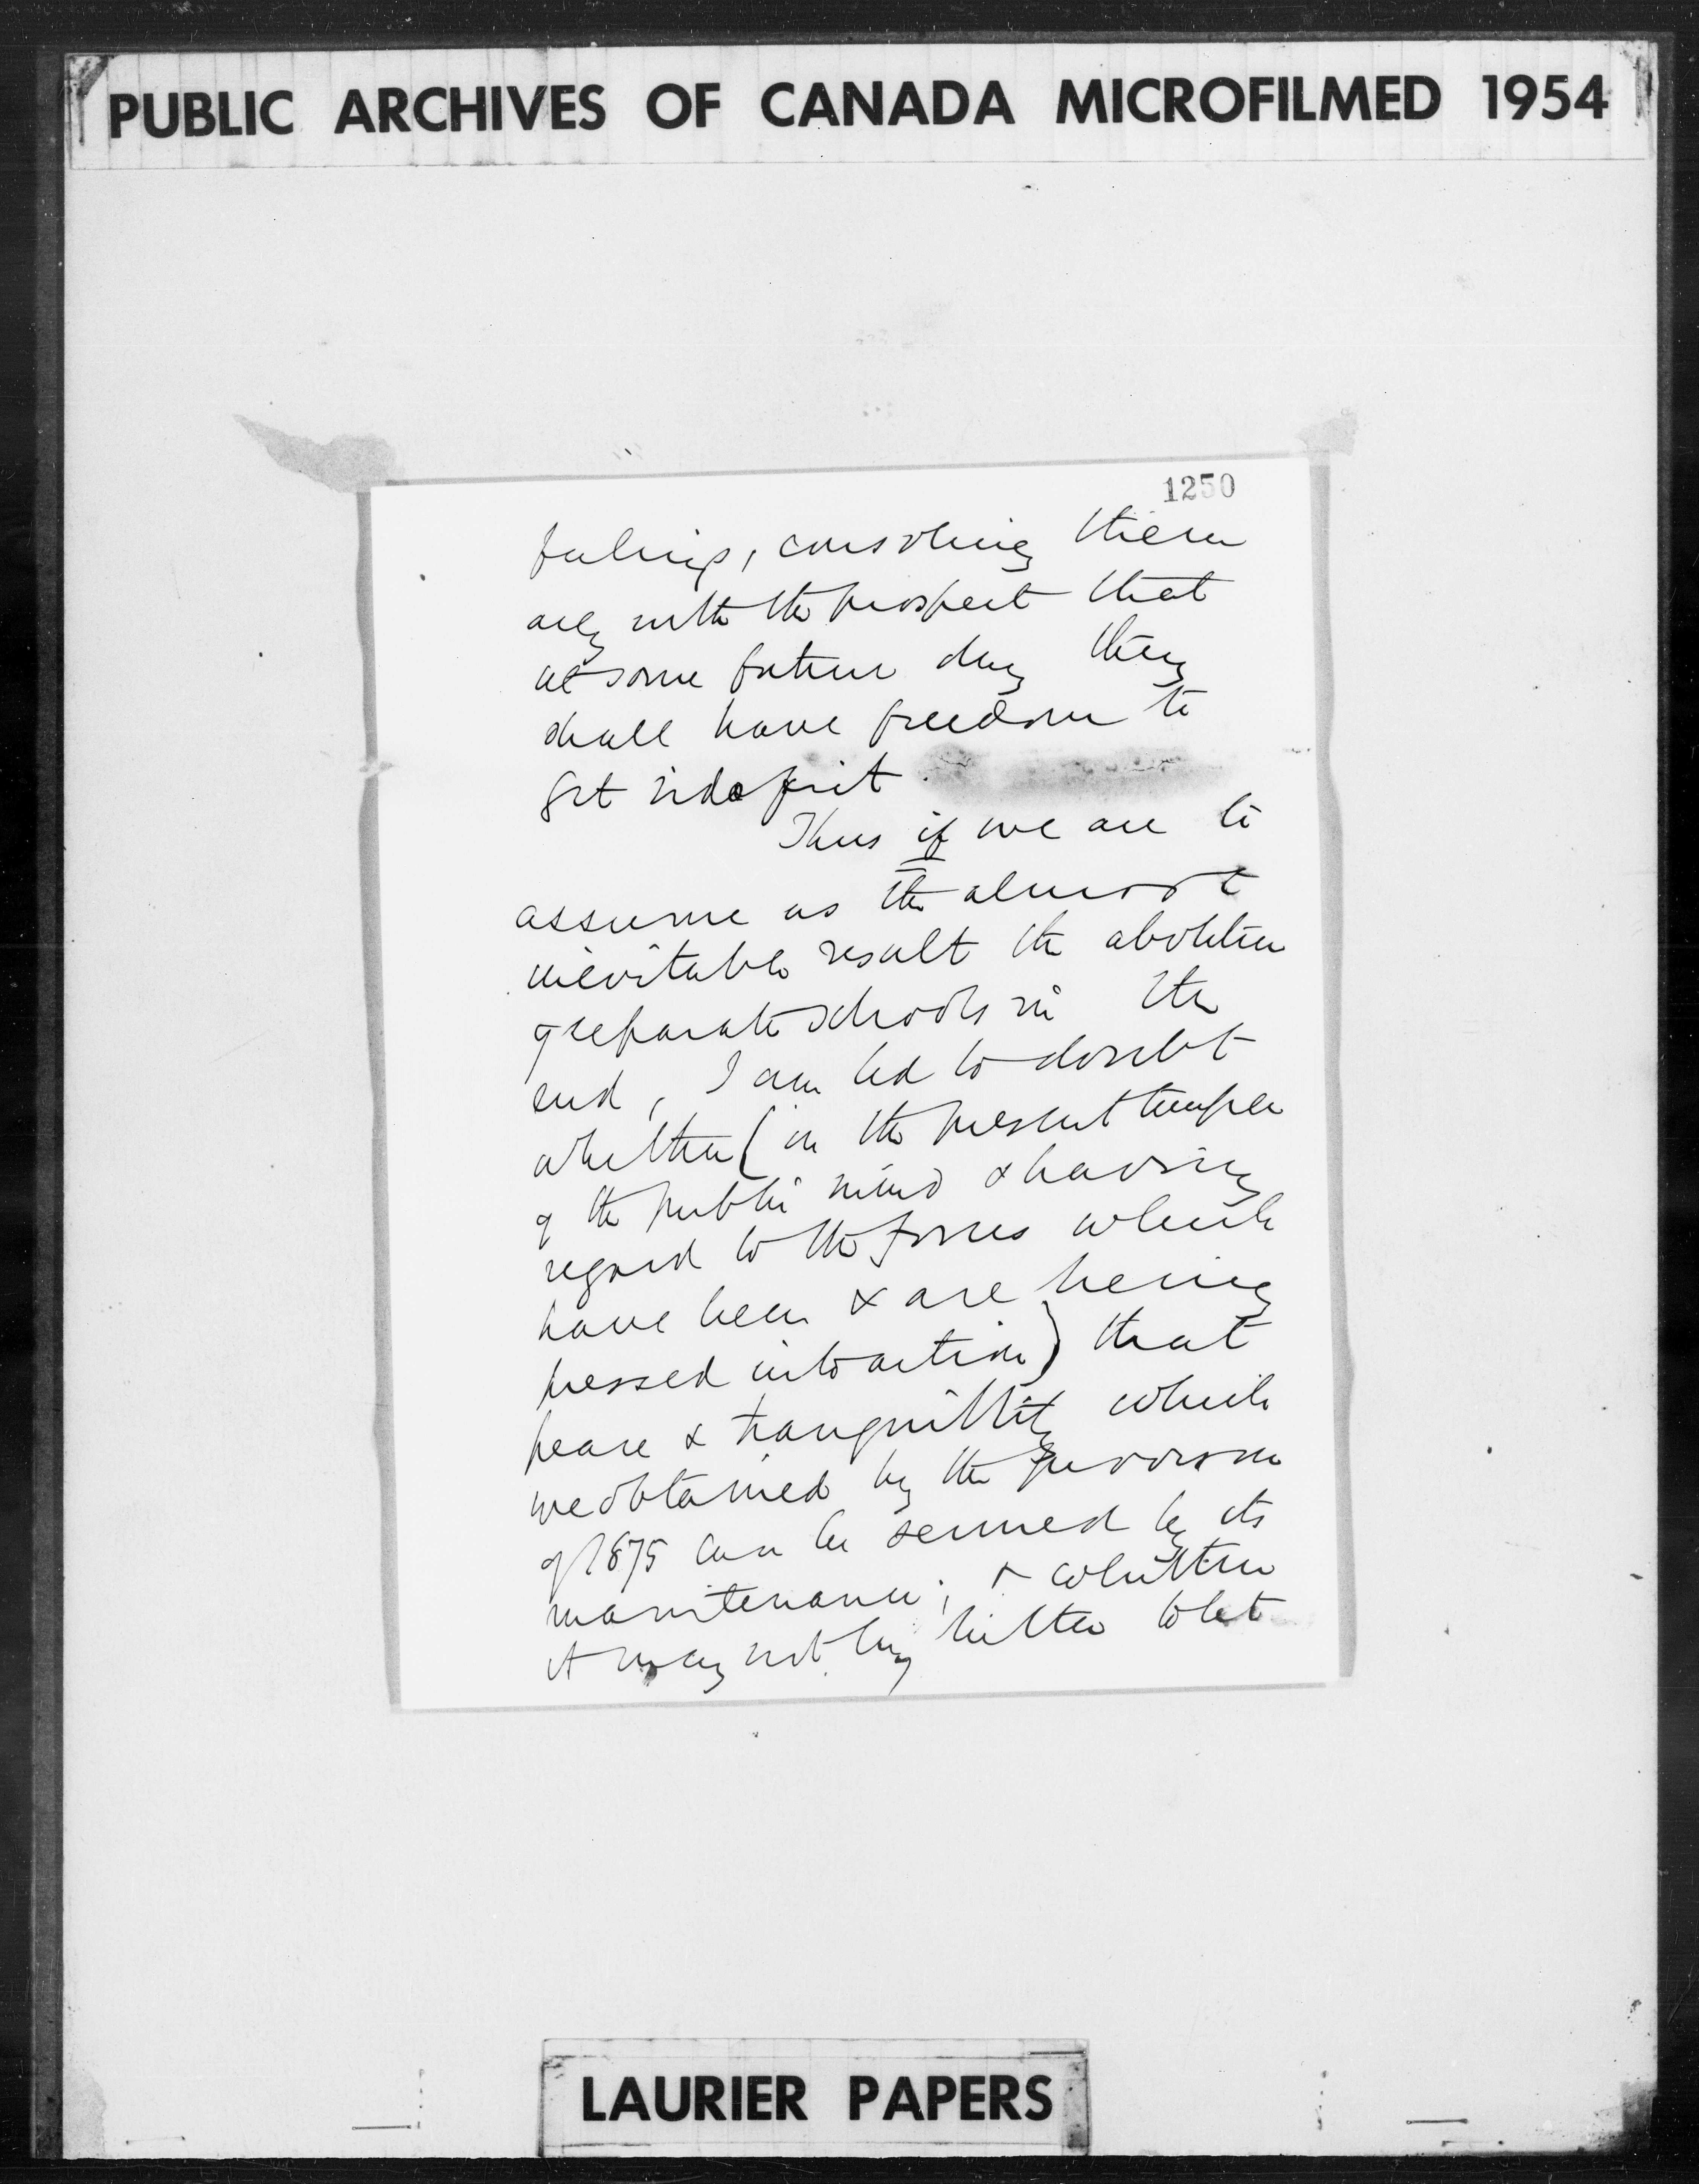 PUBLIC ARCHIVES OF CANADA MICROFILMED 1954
1250
feelings, consoling them
only with the prospect that
at some future day they
shall have freedom to
get rid of it
Thus if we are to
assume as the almost
inevitable result the abolition
of separate schools in the
end, I am led to doubt
whether (in the present temper
of the public mind & having
regard to the forces which
have been & are being
pressed into action) that
peace & tranquillity which
we obtained by the provision
of 1875 can be secured by its
maintenance; & whether
it may not be better to let
LAURIER PAPERS